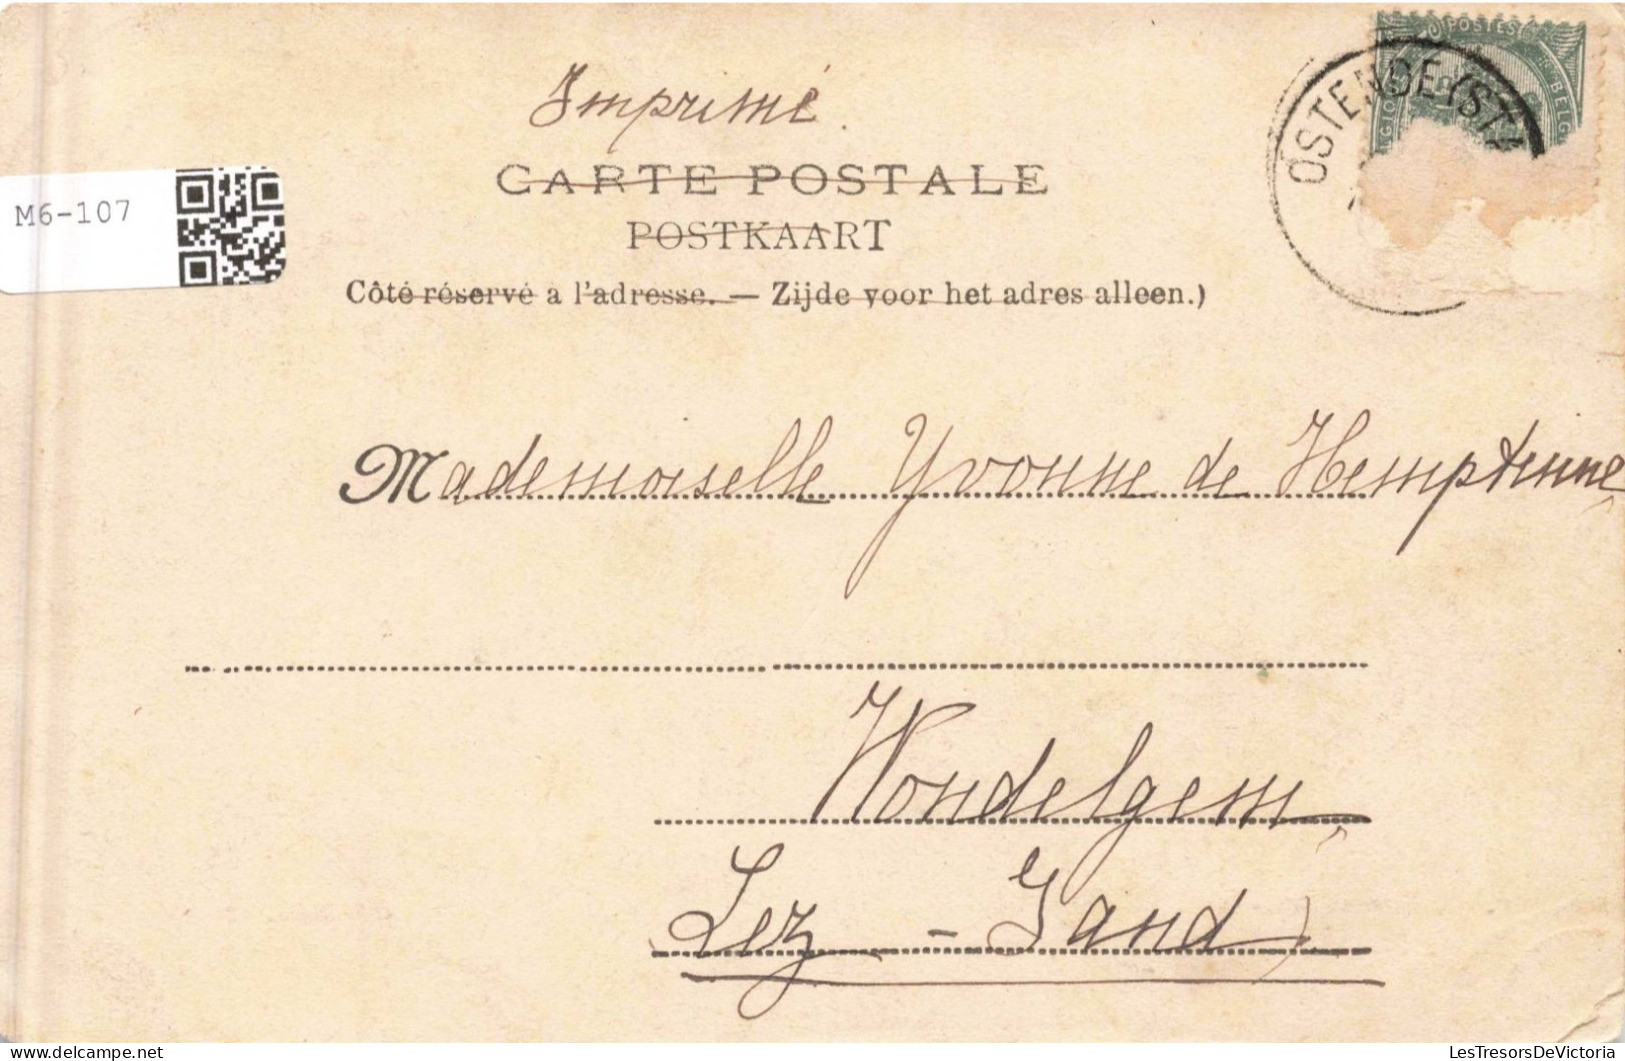 Imprimé.
CARTE POSTALE
POSTKAART
Côté réservé a l'adresse. — Zijde voor het adres alleen.)
M6-107
POSTES
BELG
OSTENDE (ST
Mademoiselle Yvonne de Hemptinne
Wondelgem
Lez - Gand
LesTresorsDeVictoria
https://www.delcampe.net
LesTresorsDeVictoria